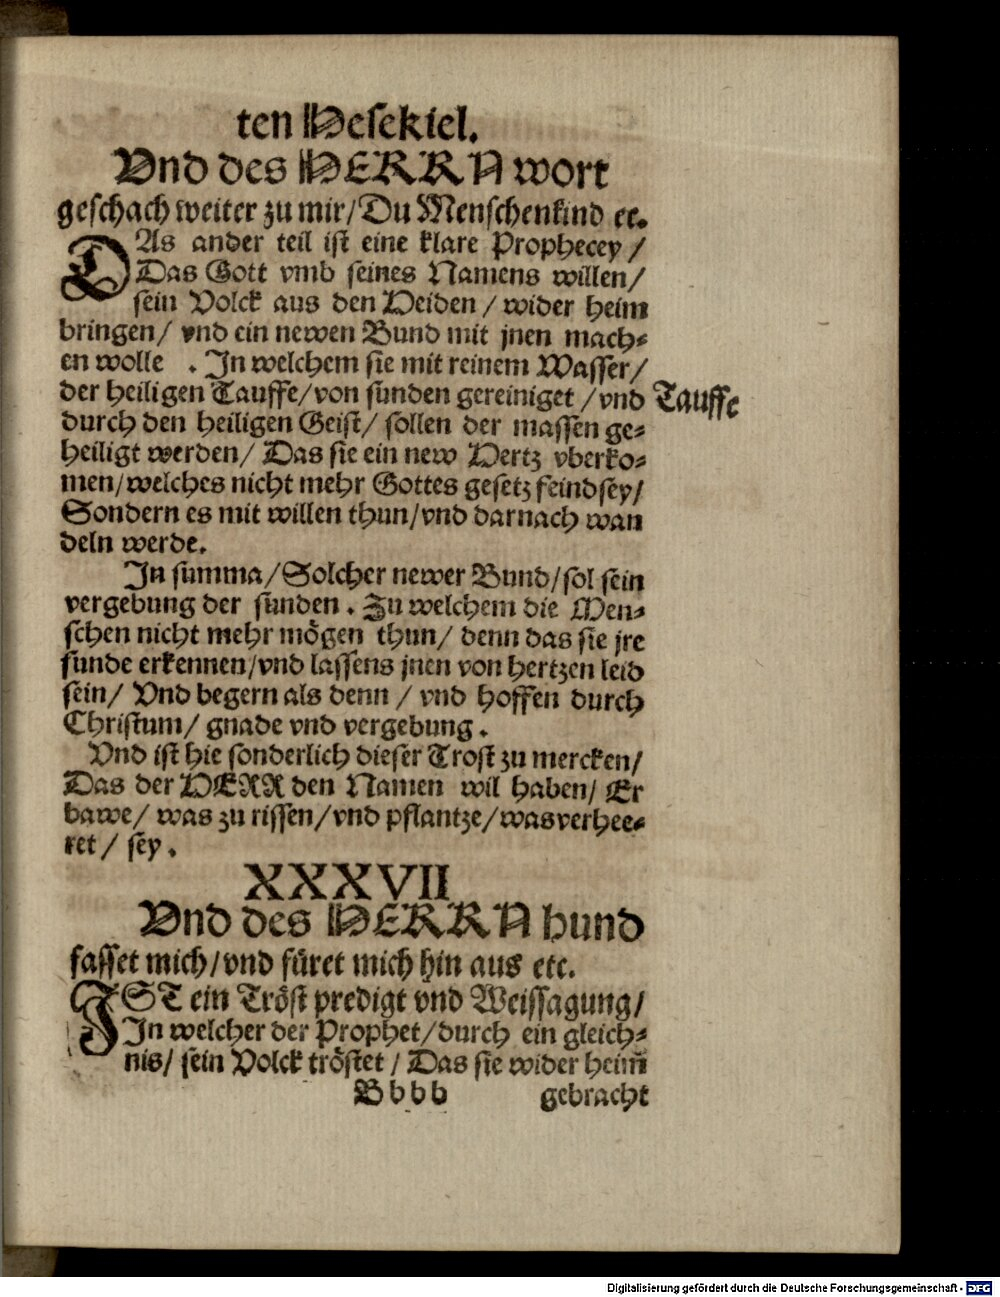 ten Hesekiel.
Vnd des HERRN wort
geschach weiter zu mir/Du Menschenkind etc.
DAs ander teil ist eine klare Prophecey /
Das Gott vmb seines Namens willen/
sein Volck aus den Heiden / wider heim
bringen/ vnd ein newen Bund mit jnen mach⸗
en wolle . In welchem sie mit reinem Wasser/
der heiligen Tauffe/von sunden gereiniget /vnd
Tauffe
durch den heiligen Geist/ sollen der massen ge⸗
heiligt werden/ Das sie ein new Hertz vberko⸗
men/welches nicht mehr Gottes gesetz feind sey/
Sondern es mit willen thun/vnd darnach wan
deln werde.
In summa/Solcher newer Bund/sol sein
vergebung der sunden . Zu welchem die Men⸗
schen nicht mehr mögen thun/ denn das sie jre
sunde erkennen/vnd lassens jnen von hertzen leid
sein/ Vnd begern als denn / vnd hoffen durch
Christum/ gnade vnd vergebung .
Vnd ist hie sonderlich dieser Trost zu mercken/
Das der HERR den Namen wil haben/ Er
bawe/ was zu rissen/vnd pflantze/was verhee⸗
ret / sey .
XXXVII
Vnd des HERRN hund
fasset mich/vnd füret mich hin aus etc.
IST ein Tröst predigt vnd Weissagung/
In welcher der Prophet/durch ein gleich⸗
nis/ sein Volck tröstet / Das sie wider heim̃
Bbbb gebracht
Digitalisierung gefördert durch die Deutsche Forschungsgemeinschaft - DFG